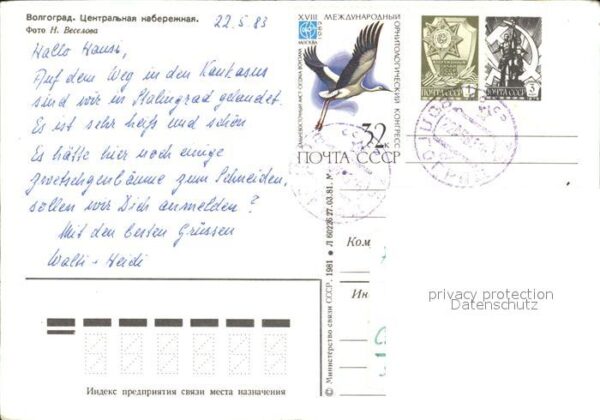 Волгоград. Центральная набережная.
Фото Н. Веселова
22.5.83
Hallo Hansi,
Auf dem Weg in den Kaukasus
sind wir in Stalingrad gelandet.
Es ist sehr heiß und schön
Es hätte hier noch einige
zwetschgenbäume zum Schneiden,
sollen wir Dich anmelden?
Mit den besten Grüssen
Walti + Heidi
XVIII МЕЖДУНАРОДНЫЙ
ОРНИТОЛОГИЧЕСКИЙ КОНГРЕСС
МОСКВА
1982
32к
ПОЧТА СССР
ПОЧТА СССР
ПОЧТА СССР 3
© Министерство связи СССР. 1981 ★ Л 60226 27.03.81.
Ком
Ин
privacy protection
Datenschutz
Индекс предприятия связи места назначения